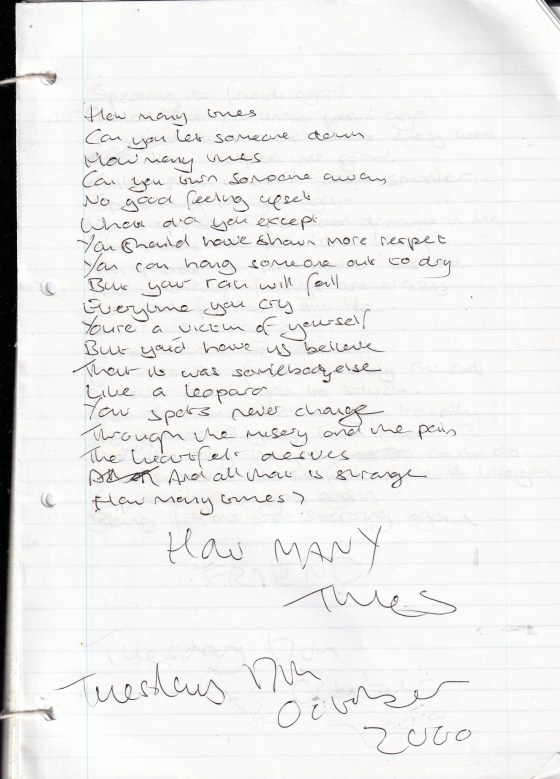 How many times
Can you let someone down
How many times
Can you turn someone away
No good feeling upset
What did you except
You should have shown more respet
You can hang someone out to dry
But your rain will fall
Everytime you cry
You're a victim of yourself
But you'd have us believe
That it was somebodyelse
Like a leopard
Your spots never change
Through the misery and the pain
The heartfelt desires
And all that is strange
How many times?
How MANY
TIMES
Tuesday 17th
October
2000